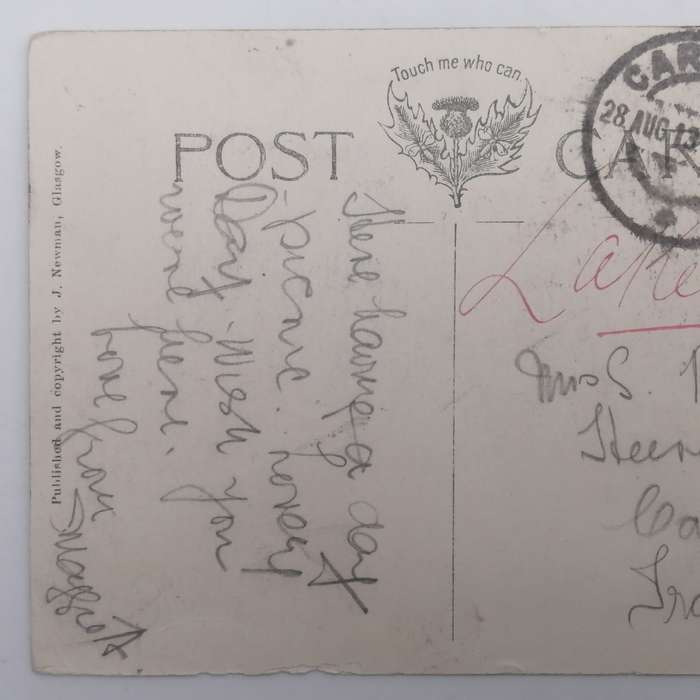 Touch me who can.
POST CAR
CAR
28 AUG 13
Published and copyright by J. Newman, Glasgow.
Here having a day
picnic. Lovely
Day. Wish you
were here.
Love from
Maggie
Lake
Mrs
Ca